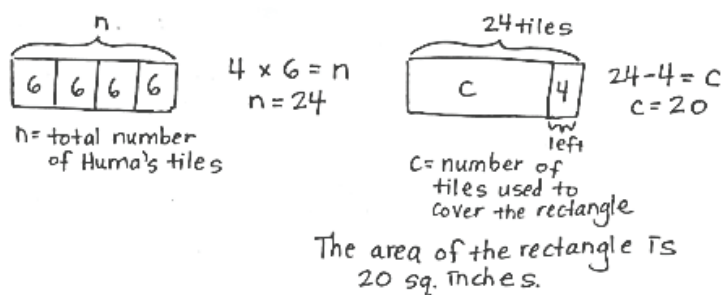 n
6 6 6 6
4 x 6 = n
n = 24
n= total number
of Huma's tiles
24 tiles
C 4
left
24-4 = C
C = 20
C= number of
tiles used to
cover the rectangle
The area of the rectangle is
20 sq. inches.